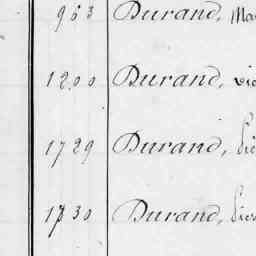 963 Durand, Ma
1200 Durand, vic
1729 Durand, Pie
1730 Durand, Pier